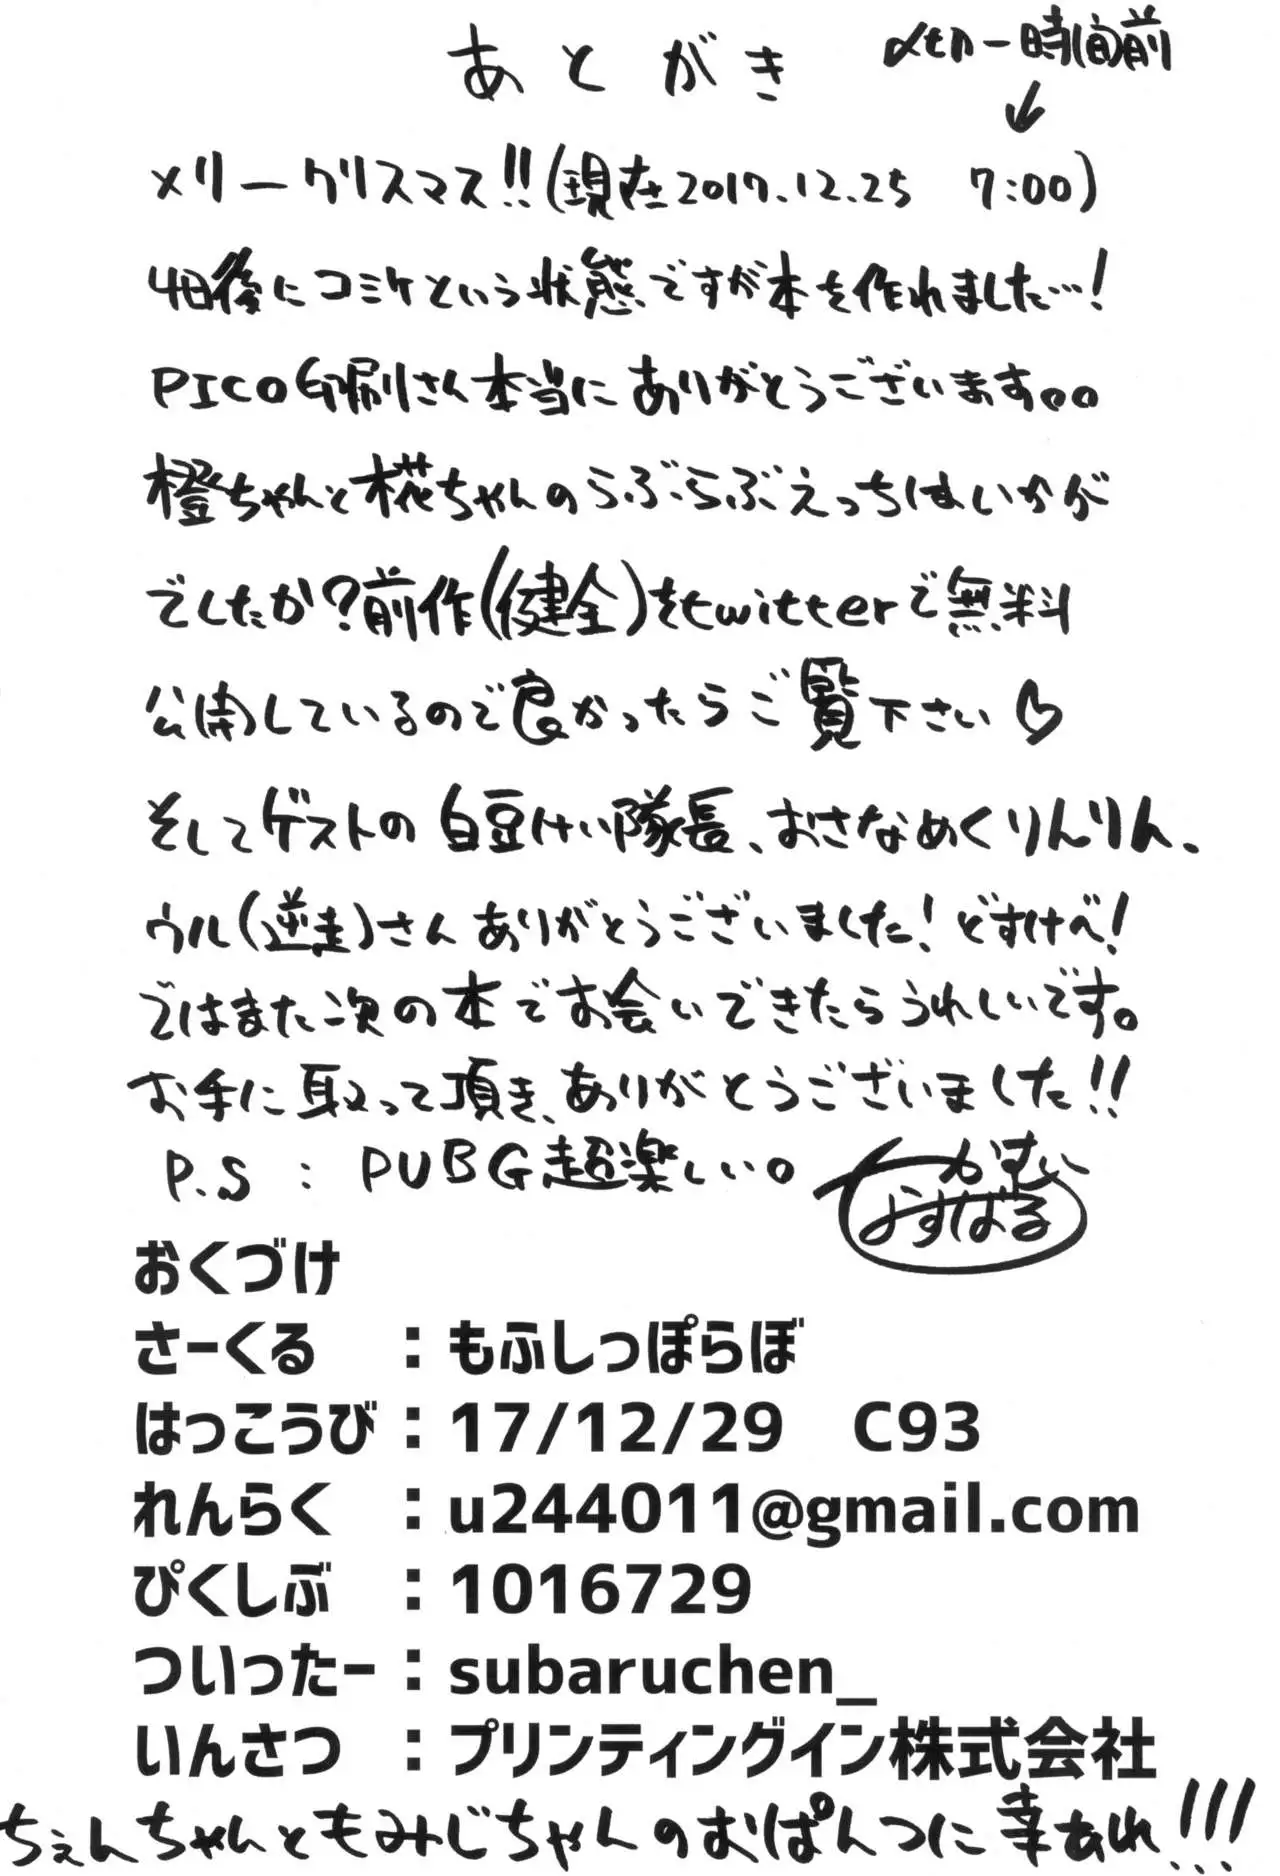 あとがき
〆切一時間前
↓
メリークリスマス!!(現在2017.12.25 7:00)
4日後にコミケという状態ですが本を作れました…!
PICO印刷さん本当にありがとうございます。。
橙ちゃんと椛ちゃんのらぶらぶえっちはいかが
でしたか?前作(健全)をtwitterで無料
公開しているので良かったらご覧下さい♡
そしてゲストの白豆けい隊長、おさなめくりんりん、
ウル(逆走)さんありがとうございました!どすけべ!
ではまた次の本でお会いできたらうれしいです。
お手に取って頂き、ありがとうございました!!
P.S : PUBG超楽しい。
かすい
よすばる
おくづけ
さーくる :もふしっぽらぼ
はっこうび:17/12/29 C93
れんらく :u244011@gmail.com
ぴくしぶ :1016729
ついったー:subaruchen_
いんさつ :プリンティングイン株式会社
ちぇんちゃんともみじちゃんのおぱんつに幸あれ!!!